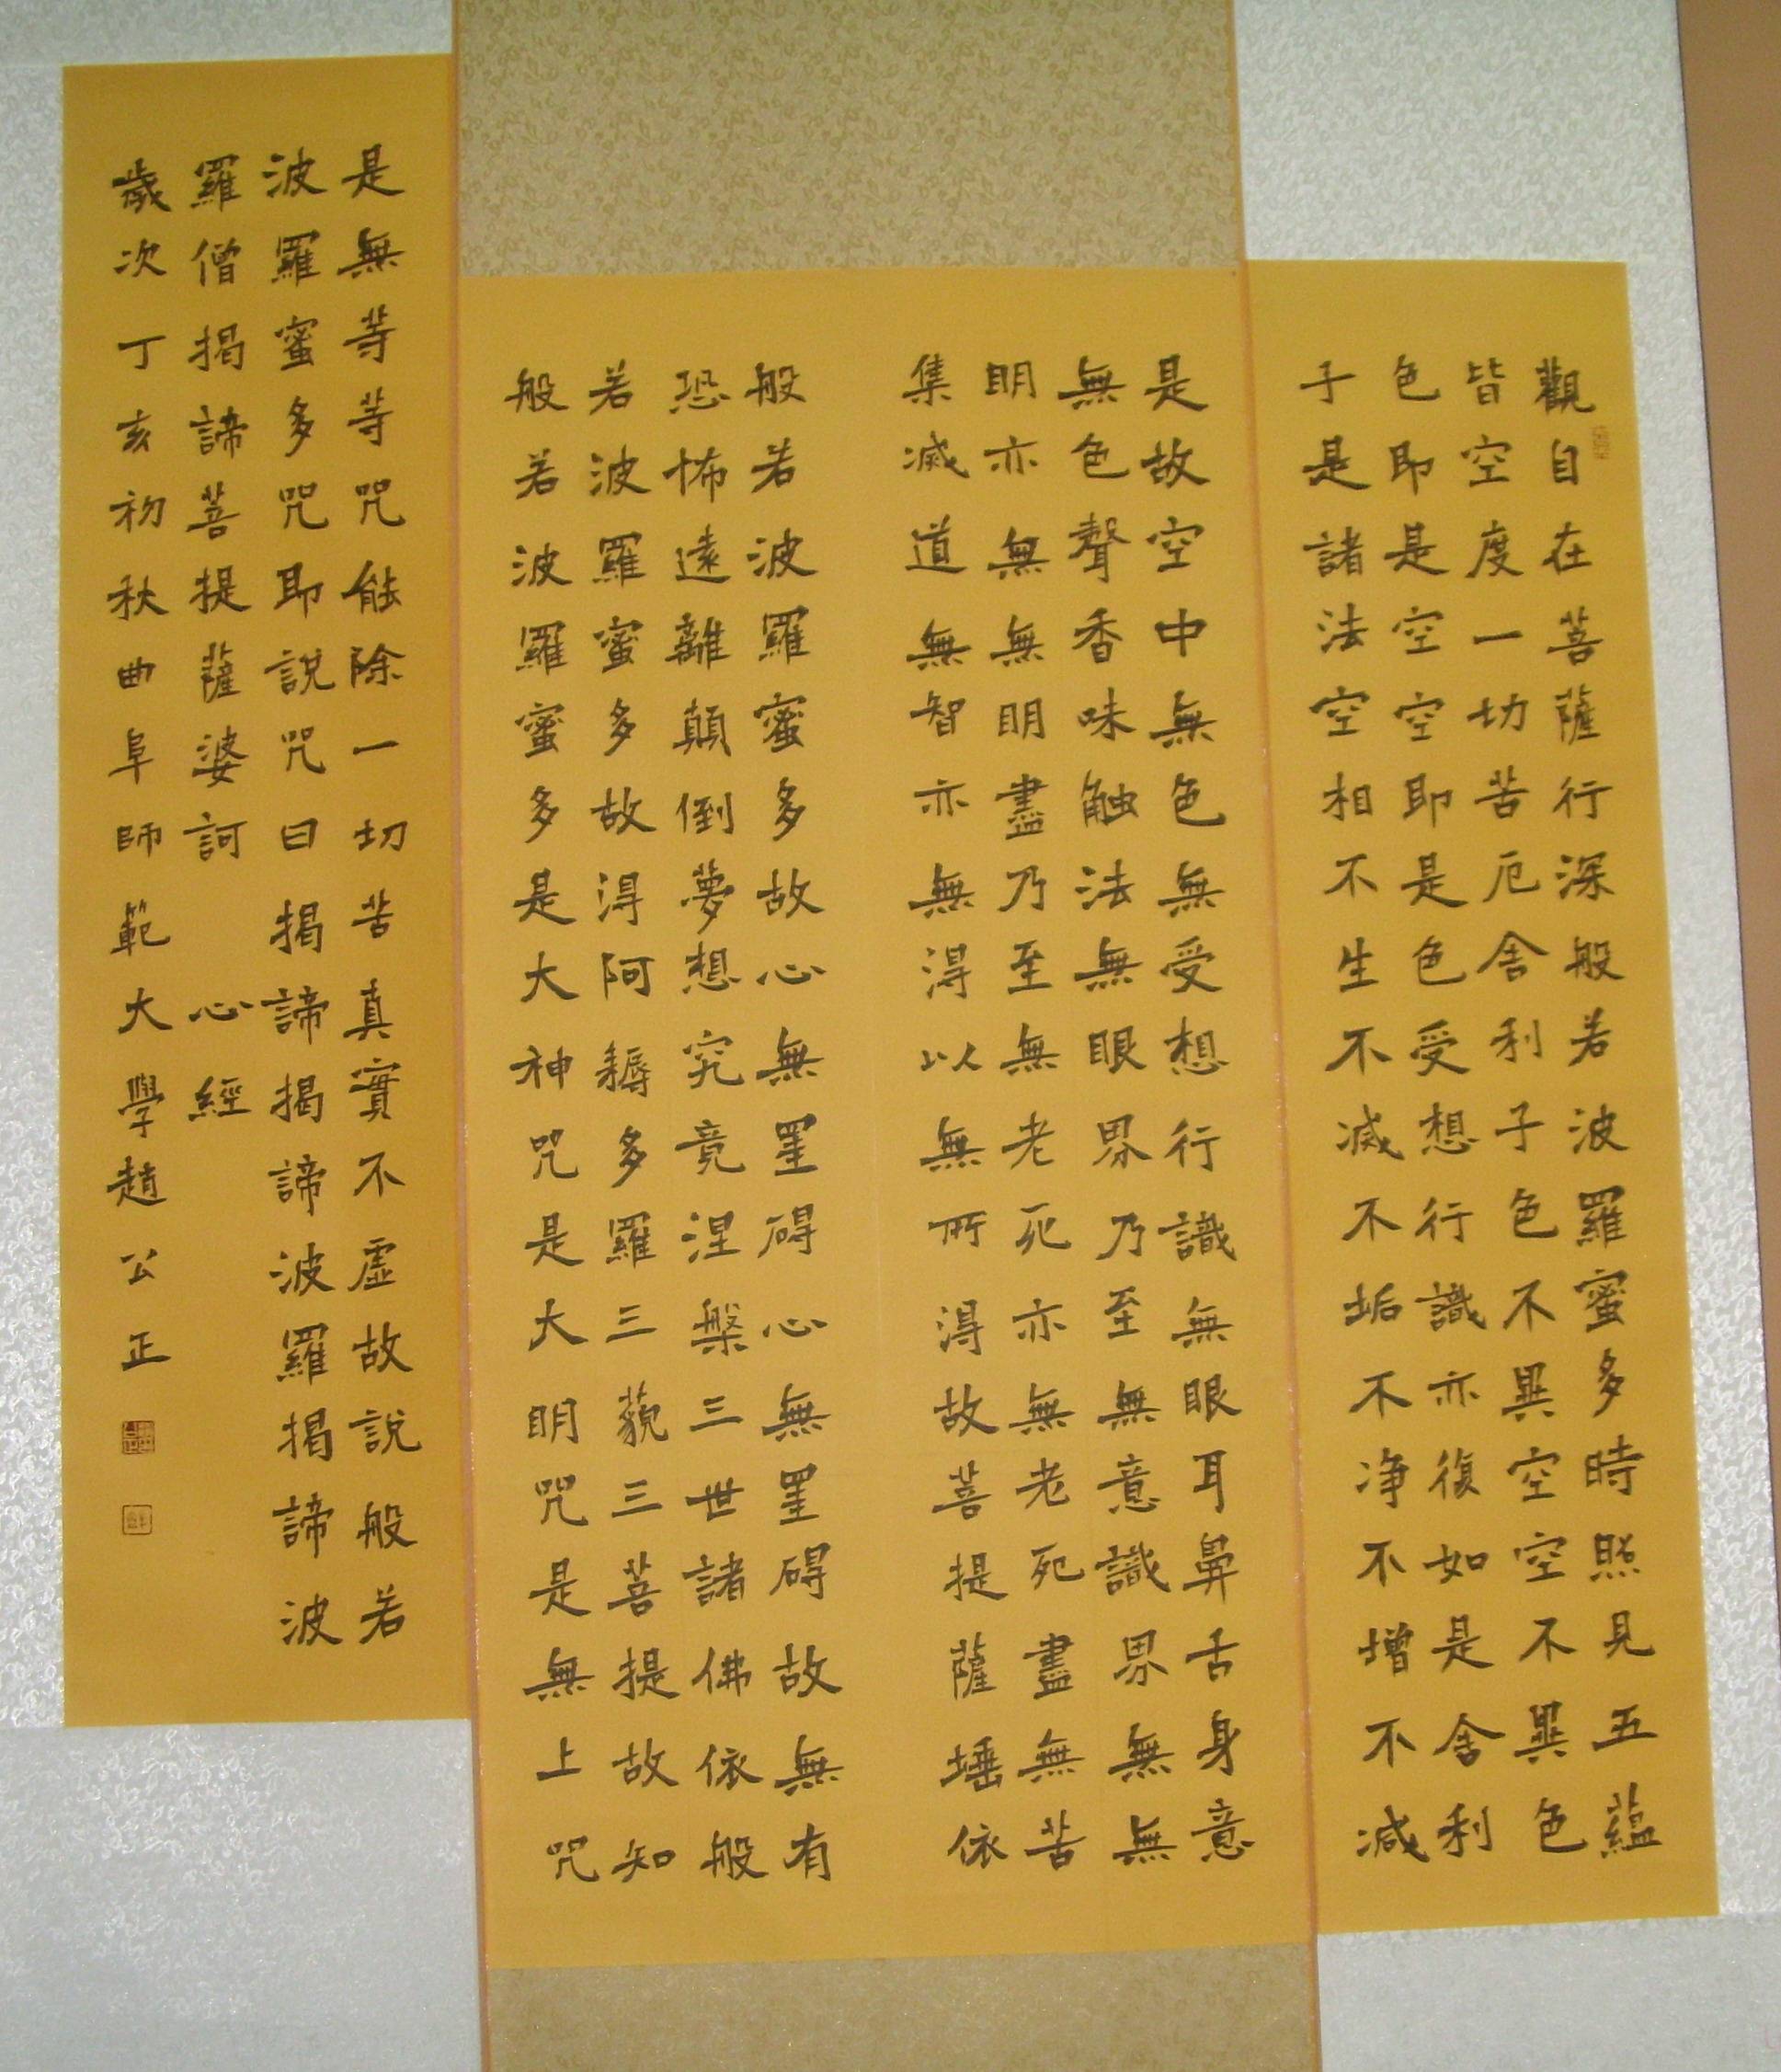 觀自在菩薩行深般若波羅蜜多時照見五蘊
皆空度一切苦厄舍利子色不異空空不異色
色即是空空即是色受想行識亦復如是舍利
子是諸法空相不生不滅不垢不净不增不減
是故空中無色無受想行識無眼耳鼻舌身意
無色聲香味触法無眼界乃至無意識界無無
明亦無無明盡乃至無老死亦無老死盡無苦
集滅道無智亦無得以無所得故菩提薩埵依
般若波羅蜜多故心無罣碍心無罣碍故無有
恐怖遠離顛倒夢想究竟涅槃三世諸佛依般
若波羅蜜多故得阿耨多羅三藐三菩提故知
般若波羅蜜多是大神咒是大明咒是無上咒
是無等等咒能除一切苦真實不虛故說般若
波羅蜜多咒即說咒曰揭諦揭諦波羅揭諦波
羅僧揭諦菩提薩婆訶 心經
歲次丁亥初秋曲阜師範大學趙公正